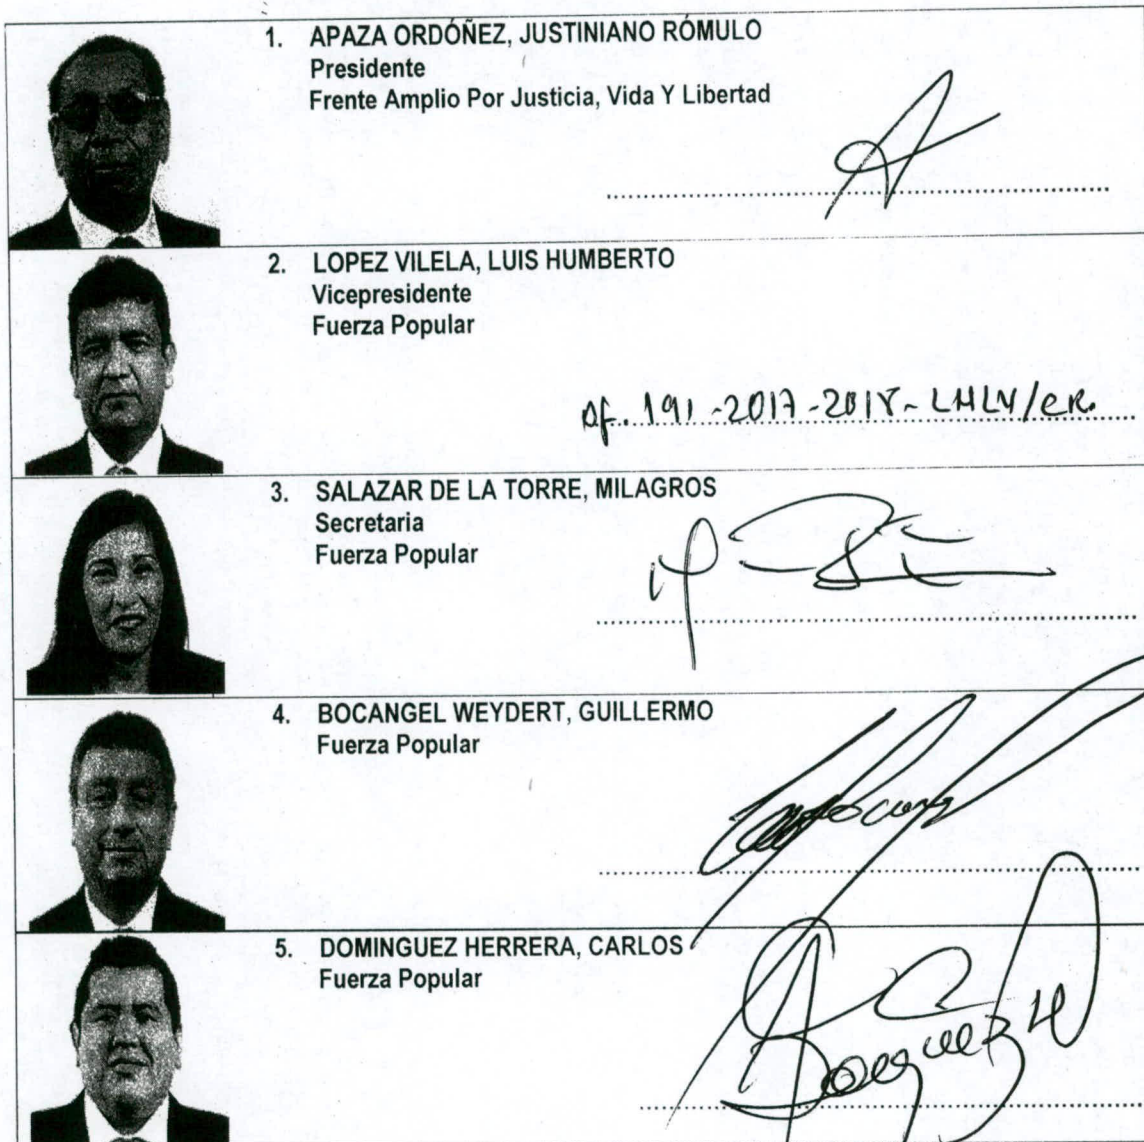 1. APAZA ORDÓÑEZ, JUSTINIANO RÓMULO
Presidente
Frente Amplio Por Justicia, Vida Y Libertad
2. LOPEZ VILELA, LUIS HUMBERTO
Vicepresidente
Fuerza Popular
of. 191-2017-2018-LHLV/CR.
3. SALAZAR DE LA TORRE, MILAGROS
Secretaria
Fuerza Popular
4. BOCANGEL WEYDERT, GUILLERMO
Fuerza Popular
5. DOMINGUEZ HERRERA, CARLOS
Fuerza Popular